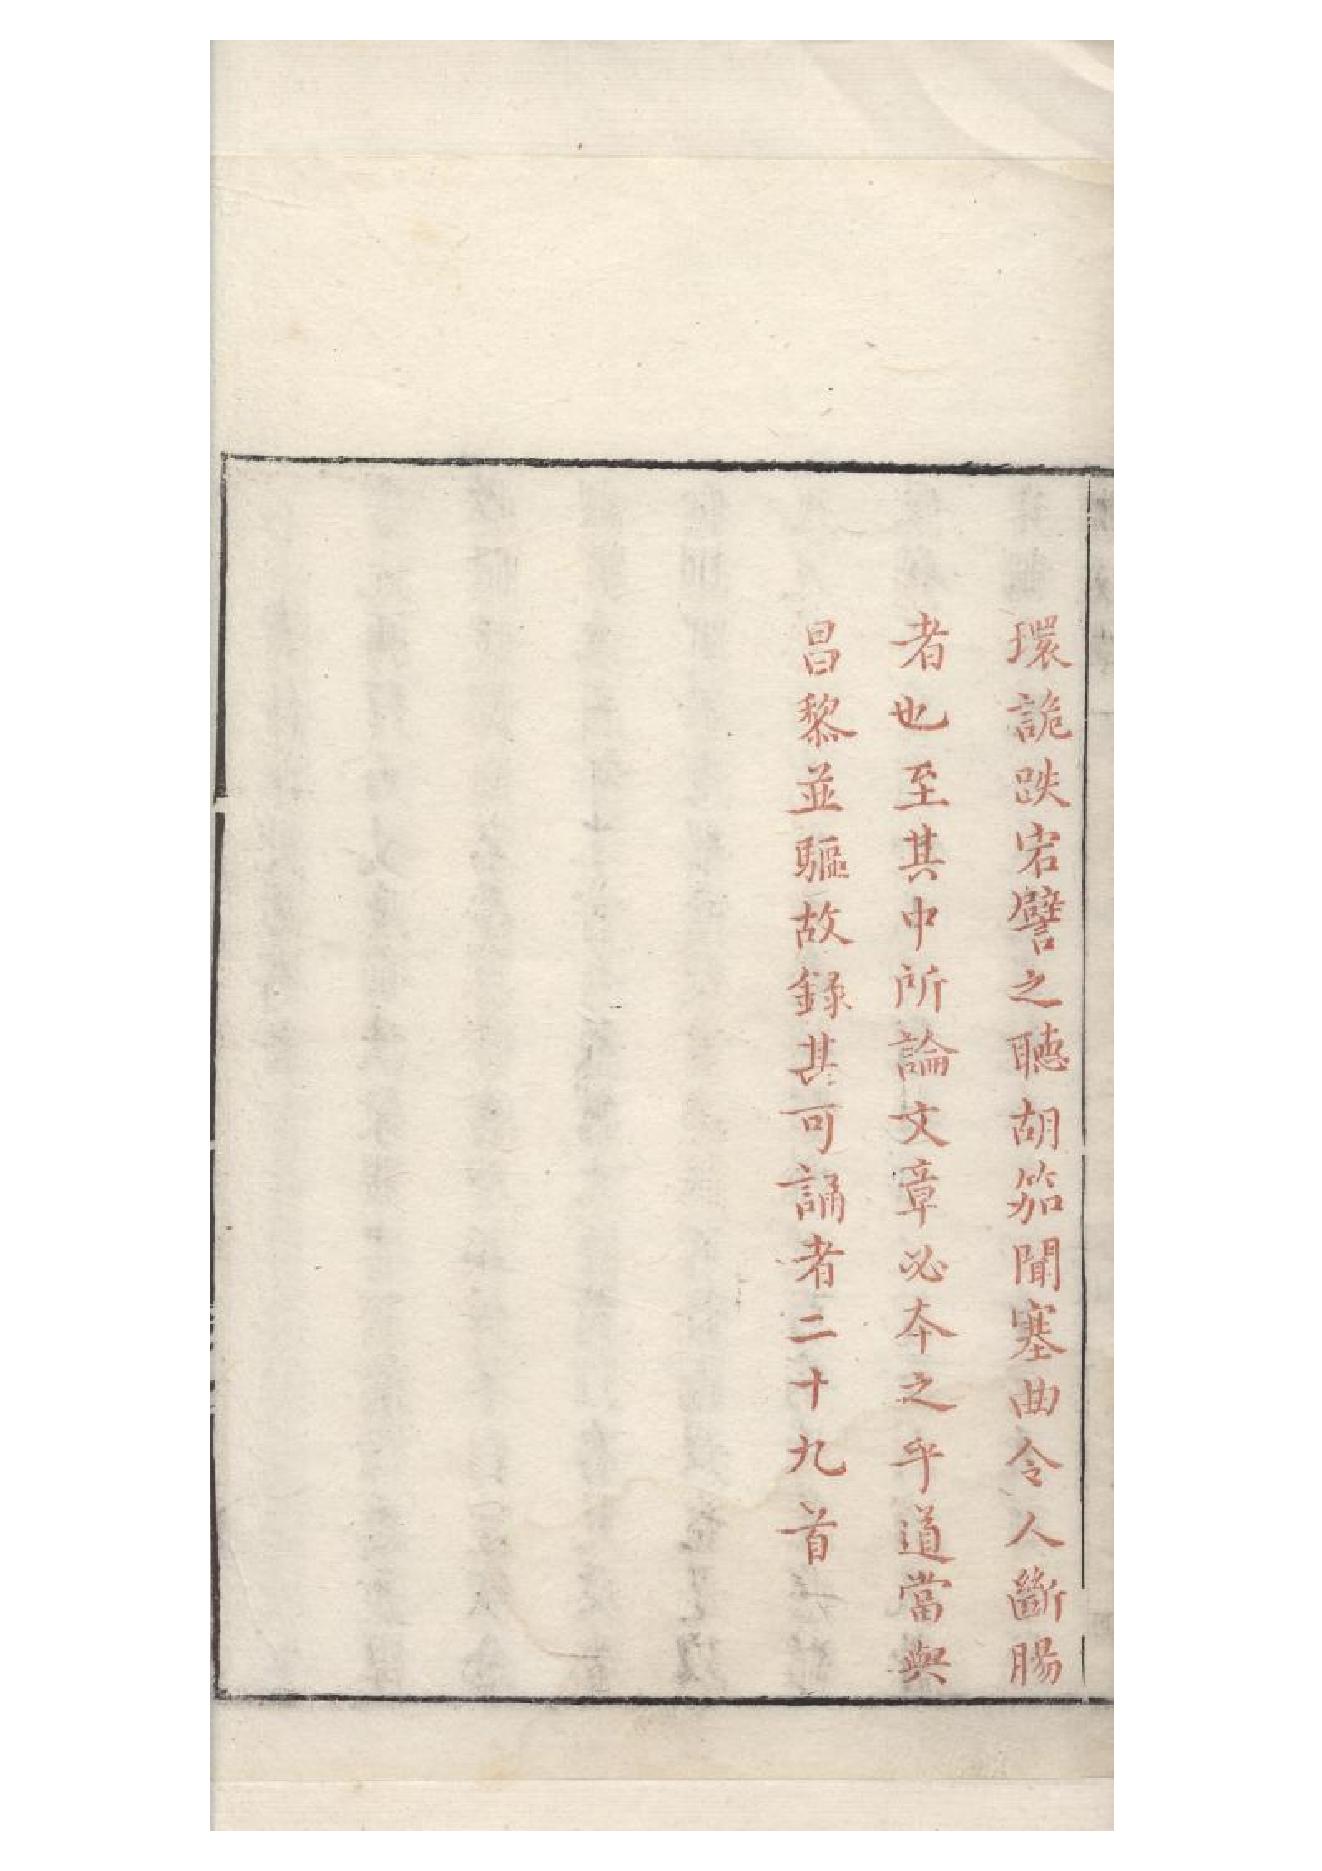 環詭跌宕譬之聽胡笳聞塞曲令人斷腸
者也至其中所論文章必本之乎道當與
昌黎並驅故錄其可誦者二十九首